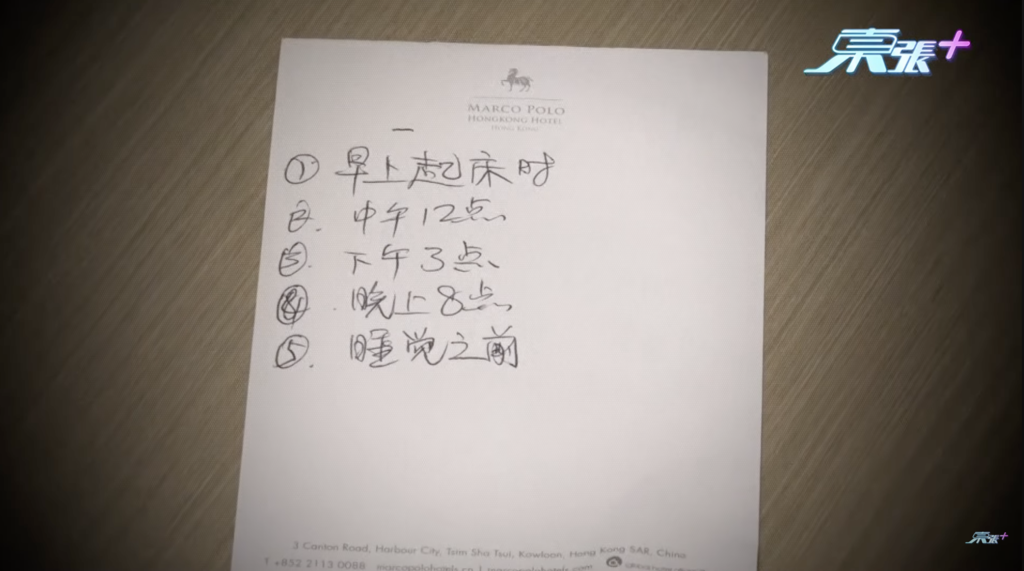 東張+
MARCO POLO
HONGKONG HOTEL
HONG KONG
① 早上起床时
②. 中午12点
③. 下午3点
④. 晚上8点
⑤. 睡觉之前
3 Canton Road, Harbour City, Tsim Sha Tsui, Kowloon, Hong Kong SAR, China
T +852 2113 0088
東張+